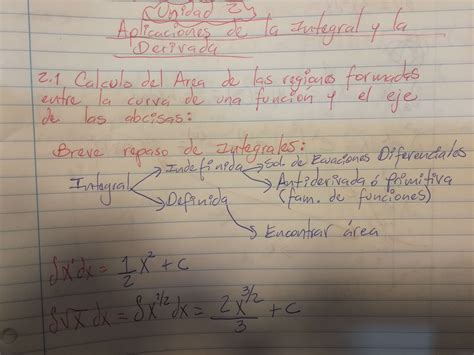 Unidad 2
Aplicaciones de la Integral y la
Derivada
2.1 Calculo del Area de las regiones formadas
entre la curva de una función y el eje
de las abcisas:
Breve repaso de Integrales:
Integral
Indefinida
Sol. de Ecuaciones Diferenciales
Antiderivada ó primitiva
(fam. de funciones)
Definida
Encontrar área
∫x¹dx = 1/2 x² + c
∫√x dx = ∫x^1/2 dx = 2x^3/2 / 3 + c